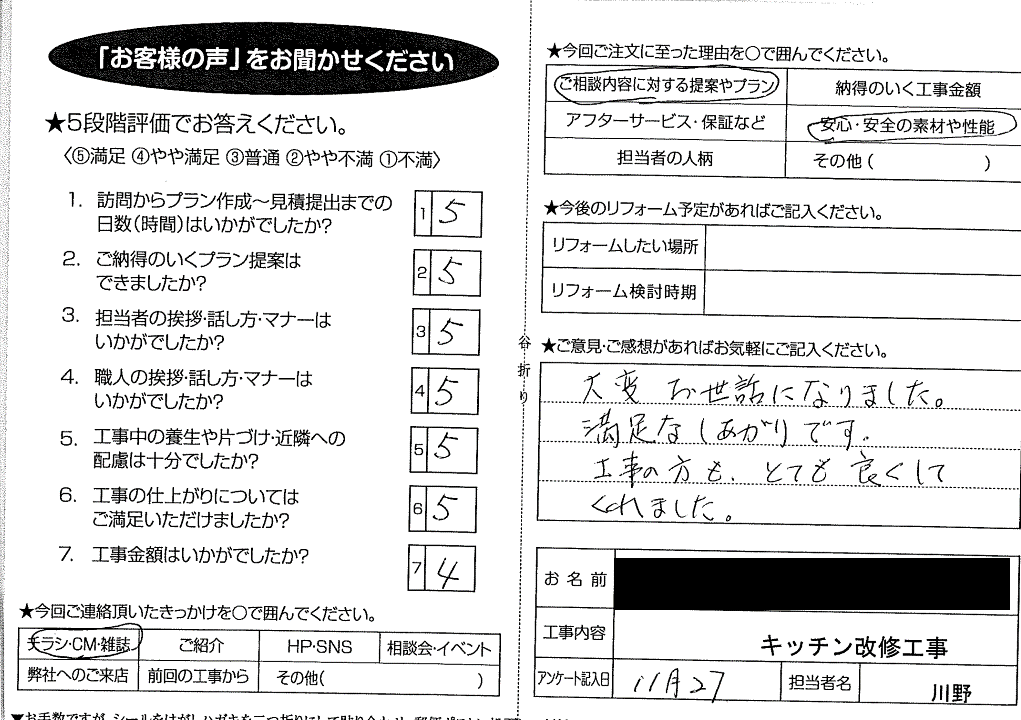 「お客様の声」をお聞かせください
★5段階評価でお答えください。
〈⑤満足 ④やや満足 ③普通 ②やや不満 ①不満〉
1. 訪問からプラン作成〜見積提出までの
日数(時間)はいかがでしたか?
1 5
2. ご納得のいくプラン提案は
できましたか?
2 5
3. 担当者の挨拶・話し方・マナーは
いかがでしたか?
3 5
4. 職人の挨拶・話し方・マナーは
いかがでしたか?
4 5
5. 工事中の養生や片づけ・近隣への
配慮は十分でしたか?
5 5
6. 工事の仕上がりについては
ご満足いただけましたか?
6 5
7. 工事金額はいかがでしたか?
7 4
★今回ご連絡頂いたきっかけを〇で囲んでください。
チラシ・CM・雑誌 ご紹介 HP・SNS 相談会・イベント
弊社へのご来店 前回の工事から その他( )
谷折り
★今回ご注文に至った理由を〇で囲んでください。
ご相談内容に対する提案やプラン 納得のいく工事金額
アフターサービス・保証など 安心・安全の素材や性能
担当者の人柄 その他( )
★今後のリフォーム予定があればご記入ください。
リフォームしたい場所
リフォーム検討時期
★ご意見・ご感想があればお気軽にご記入ください。
大変お世話になりました。
満足なしあがりです。
工事の方も、とても良くして
くれました。
お名前
工事内容 キッチン改修工事
アンケート記入日 11月27 担当者名 川野